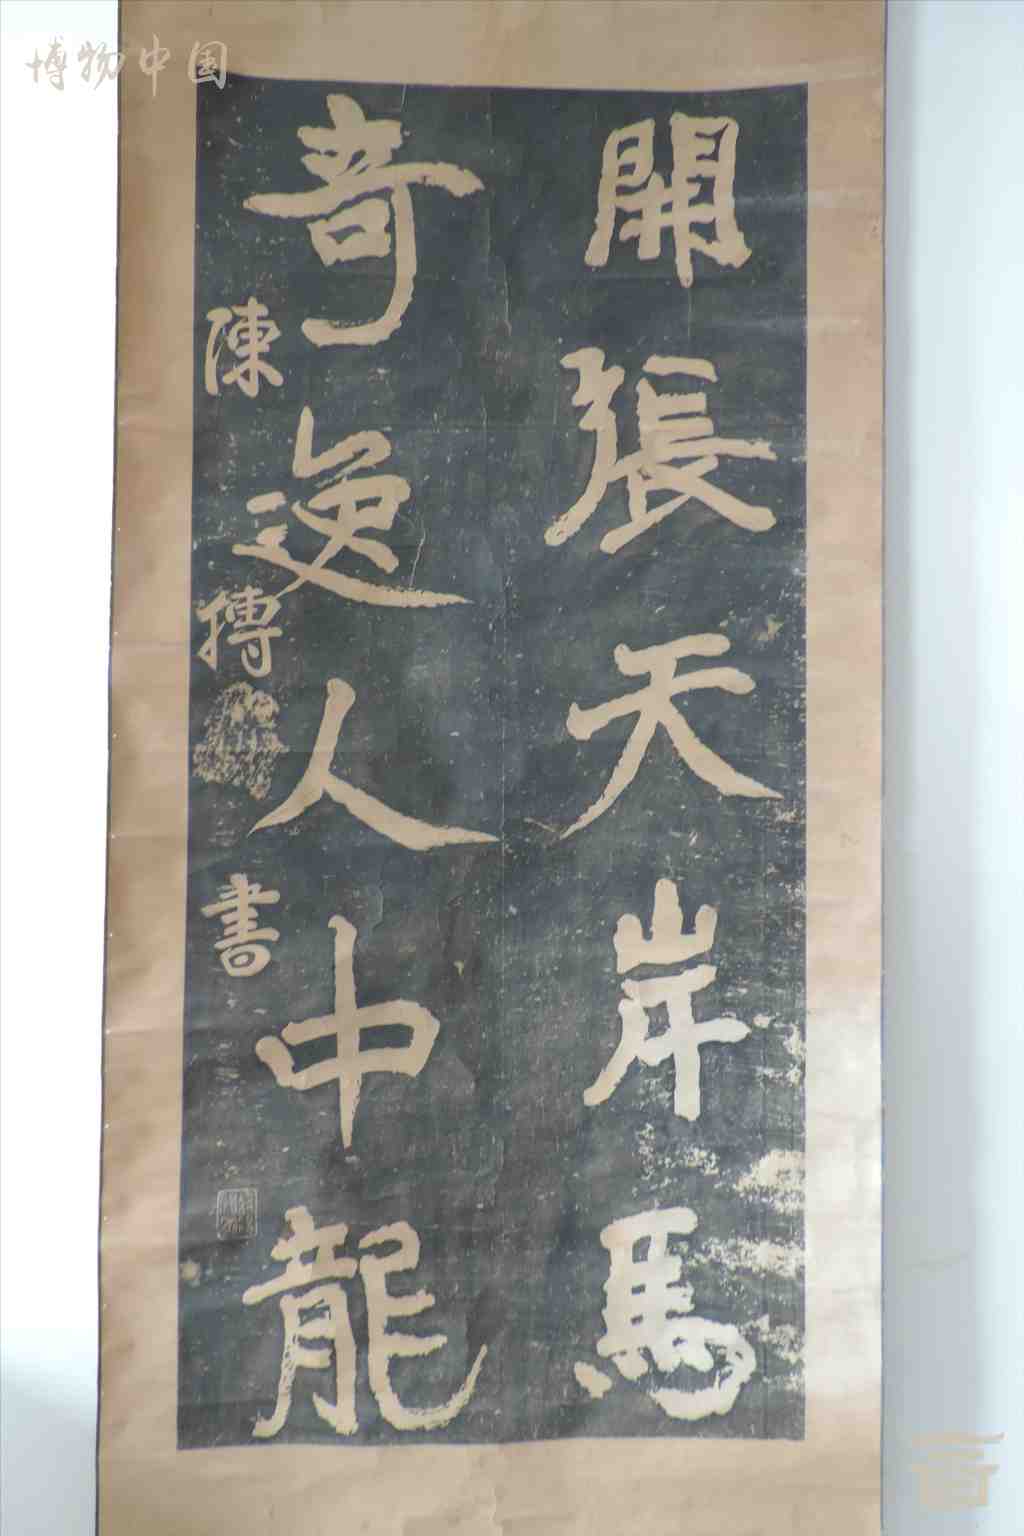 博物中国
開張天岸馬
奇逸人中龍
陳摶書